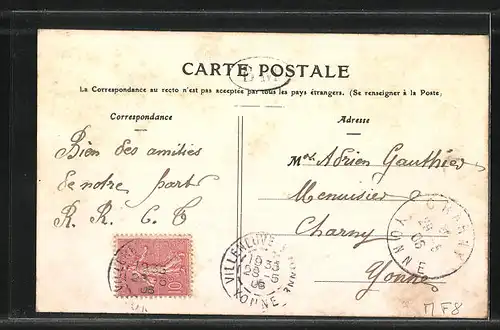 CARTE POSTALE
La Correspondance au recto n'est pas acceptée par tous les pays étrangers. (Se renseigner à la Poste)
Correspondance
Adresse
Bien des amitiés
de notre part
R. R. C. T
Mr Adrien Gauthier
Menuisier
Charny
Yonne
CHARNY
YONNE
VILLENEUVE
YONNE
10
MF8